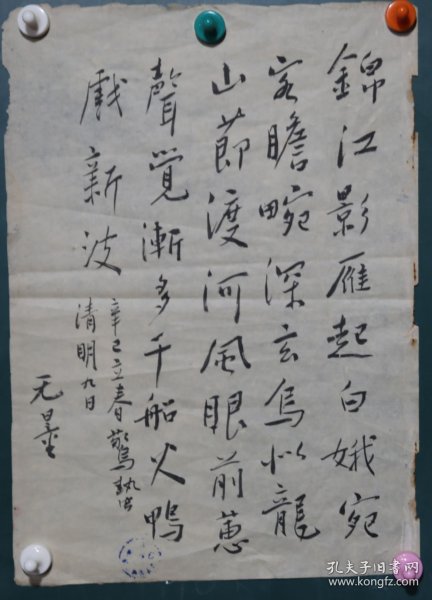 錦江影雁起白娥宛
客瞻畹深玄鳥似龍
山節渡河風眼前蔥
聲覺漸多千船火鴨
戲新波
辛巳立春驚蟄
清明九日
无量
孔夫子旧书网
www.kongfz.com